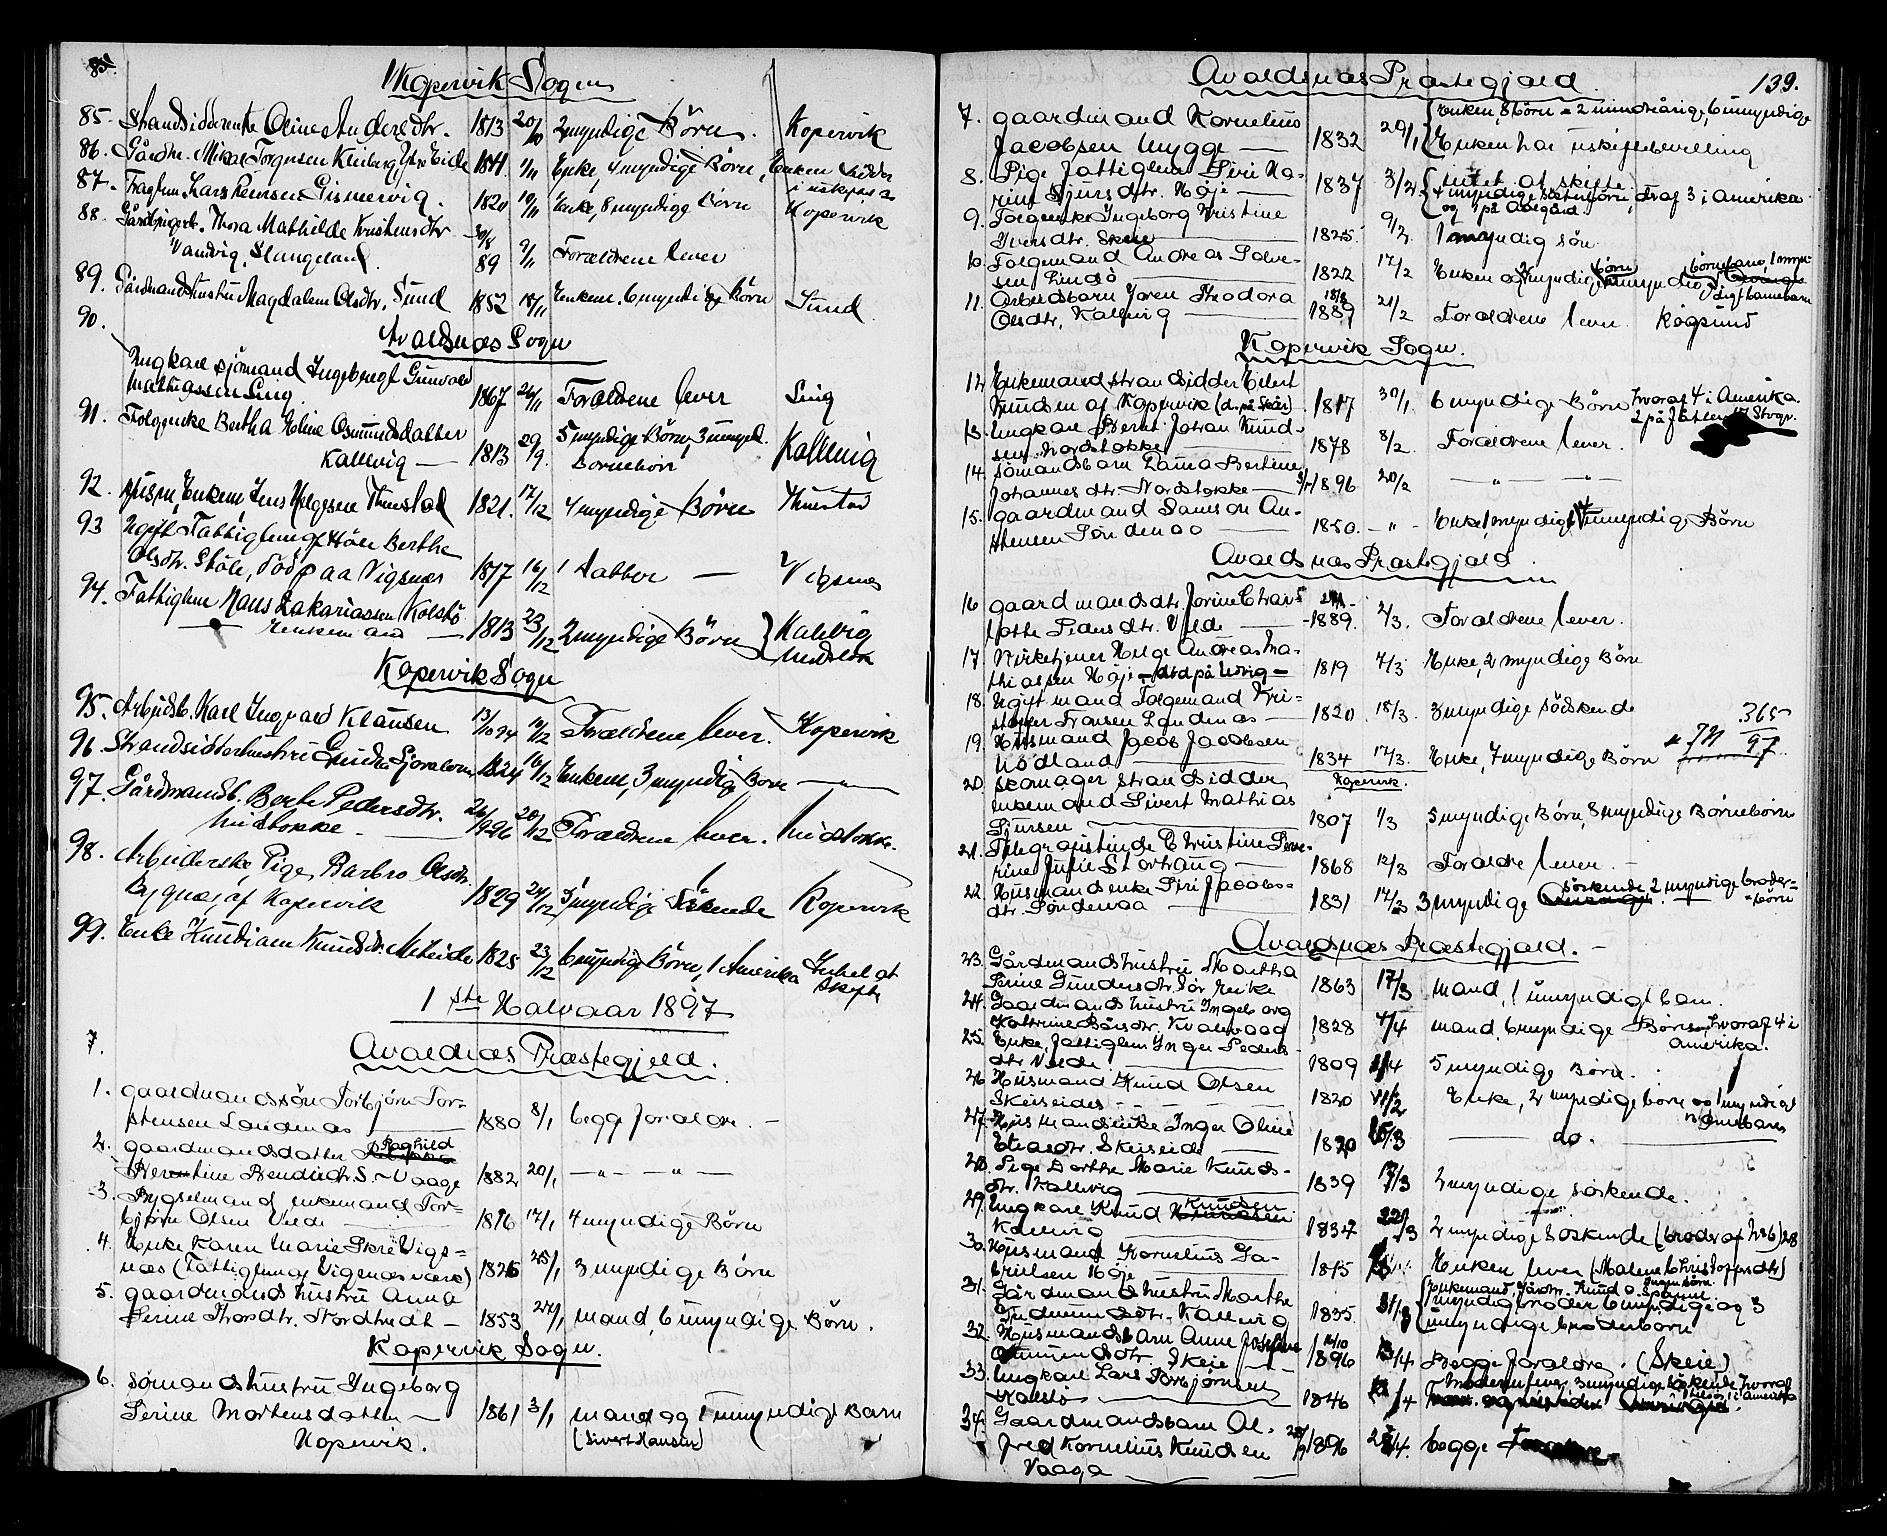 Kopervik Sogn
85. Strandsidderenke Oline Andersdtr. 1813 20/10 2 myndige Børn. Kopervik
86. Gårdm. Mikal Torgersen Eide 1841. 1/11 Enke, 4 myndige Børn, Enken sidder i uskiftet
87. Lars Gismervig. 1820 10/11 Enke, 8 myndige Børn Kopervik
88. Thora Mathilde Kristensdtr 30/8
Vandvig, Stangeland 89 9/11 Forældrene lever
89. Gårdmandshustru Magdalene Olsdtr. Sund 1852 18/11 Enkem. 6 myndige Børn Sund
90.
Avaldsnæs Sogn
Ungkarl sjömand Ingebregt Gunvald
Mathiassen Ling 1867 26/11 Forældrene lever Ling
91. Folgenke Bertha Eline Osmundsdatter
Kallevig — 1813 29/9. 5 myndige Børn, 3 umynd. Børnebørn Kallevig
92. Husm. Enkem. Jens Helgesen Thuestad 1821. 17/12 4 myndige Børn Thuestad
93 Ugift Fattiglem af Håle Berthe
Olsdtr. Ståle, död paa Vigsnæs 1817 16/12 1 datter — Vigsnæs
94. Fattiglem Hans Zakariassen Kolstø
Enkemand — 1813 23/12 2 myndige Børn } Kallevig
Kopervik Sogn
95. Arbejdsb. Karl Ingvard Klausen 13/10 94 14/12 Forældrene lever. Kopervik
96. Strandsidderhustru 1824 16/12 Enkem, 3 myndige Børn — " —
97. Gårdmandsb. Berte Pedersdtr.
Midstokke. 26/9 96 20/12 Forældrene lever. Midstokke.
98. Arbeiderske, Pige, Barbro Olsdtr.
Bygnes af Kopervik 1829 24/12 3 myndige Søskende Kopervik
99. Enke Knudsdtr. Mideide 1825 23/12 6 myndige Børn, 1 Amerika Intet at skifte
1ste Halvaar 1897
7.
Avaldnæs Præstegjeld.
1. gaardmandssøn Torbjörn Tor-
stensen Landenæs 1880 8/1 begge foraldre. —
2. gaardmandsdatter Raghild
Berentine Bendicktdr. S. Vaage 1882 20/1 — " — — " —
3. Bygselmand enkemand Tor-
björn Olsen Velde 1816 17/1 4 myndige Børn
4. Enke Karen Marie Skre Vigs-
næs (Fattiglem af Vigsnæs værk) 1826 25/1 3 myndige Børn
5. gaardmands hustru Anna
Serine Thordtr. Stordtvedt — 1853 27/1 mand, 6 umyndige Børn.
Kopervik Sogn.
6. sømandshustru Ingeborg
Serine Mortensdatter — 1861 3/1 mand og 1 umyndigt Barn
Kopervik. (Sivert Hansen)
Avaldsnæs Præstegjæld. 139.
7. gaardmand Kornelius Enken, 8 Børn = 2 mindreårige, 6 umyndige
Jacobsen Mygge — 1832 29/1 Enken har uskiftebevilling
8. Pige Fattiglem Siri Ka-
rine Sjursdtr. Høje — 1837 3/2 intet at skifte 4 myndige søsterbörn, hvoraf 3 i Amerika og 1 på Aalegård
9. Folgeenke Ingeborg Kristine
Iversdtr. Skeie 1825. 9/2 1 myndig søn.
10. Folgemand Andreas Salve-
sen Lindö 1822 17/2
11. Arbeidsbarn Joren Theodora
Olsdtr. Kallevig 18/8 1889 21/2 Forældrene lever Kogsund
Kopervik Sogn.
12. Enkemand strandsidder Eilert
Knudsen af Kopervik (d. på Skår) 1817 30/1. 6 myndige Børn hvoraf 4 i Amerika.
13. Ungkarl Bernt Johan Knud-
sen Nordstokke 1878 8/2. Forældrene lever.
14. sömandsbarn Laura Bertine
Johannesdtr Nordstokke 1896 20/2 — " — — " —
15. gaardmand Samson An-
stensen Söndenaa — 1850. — " — Enke, 1 myndigt 4 umyndige Børn
Avaldsnæs Præstegjæld
16 gaardmandsdtr. Jorine Char-
lotte Pedersdtr. Velde 1889. 2/3. Forældrene lever.
17. Kirketjener Helge Andreas Ma-
thiassen Høje — död på Utvig — 1819 7/3 Enke, 2 myndige Børn
18. Ugift mand Folgemand Kri-
stoffer Transen Landenæs — 1820 18/3. 3 myndige södskende 365
19. Husmand Jacob Jacobsen
Nödland 1834 17/3. Enke, 7 myndige Børn 97
Kopervik.
20. skomager strandsidder
enkemand Sivert Mathias
Sjursen 1807 1/3 5 myndige Børn, 8 myndige Børnebörn
21. Telegrafistinde Christine Seve-
rine Julie Storhaug 1868 12/3 Foraldre lever —
22. Husmandsenke Siri Jacobs-
dtr. Söndenaa 1831 17/3 3 myndige söskende 2 myndige broder-
börn
Avaldsnæs Præstegjæld. —
23. Gårdmandshustru Martha
Serine Gundersdtr. Sør Eike 1863 17/3 mand, 1 umyndigt barn.
24. Gaardmandshustru Ingeborg
Kathrine Båsdtr. Kvalevaag 1828 4/4 mand. 6 myndige Børn hvoraf 4 i Amerika.
25. Enke, Fattiglem Inger Peders-
dtr Velde 1809 4/4 5 myndige Børn.
26 Husmand Knud Olsen
Skeiseides 1820 11/2 Enke, 2 myndige börn og 1 myndigt börnebarn
27. Husmandsenke Inger Oline
Eliasdtr. Skeiseide 1820 15/3 — do. —
28. Pige Dorthe Marie Knuds-
dtr. Kallevig 1839 17/3 2 myndige söskende.
29. Ungkarl Knud Knudsen
Kallevig 1837 22/3 2 myndige söskende (broder af No 6) 28
30. Husmand Kornelius Ga-
brielsen Höje 1815 Enken lever (Malene Christoffersdtr)
31. Gårdmands hustru Marthe
Gudmundsdtr. Kallevig 1835. 31/3 Enkemand, Gårdm. Knud O. Spanne. ingen börn. 1 myndig broder 6 myndige og 3 umyndige broderbörn
32. Husmandsbarn Anne Josefine
Omundsdtr. Skeie 16/10 1896 3/4 Begge foraldre. (Skeie)
33. Ungkarl Lars Torbjörnsen
Kolstö 1846 /4 Moderen lever, 3 myndige söskende hvoraf 1 i Amerika
34. Gaardmandsbarn Al-
fred Kornelius Knudsen
Vaaga 1896 /4. begge Foraldre